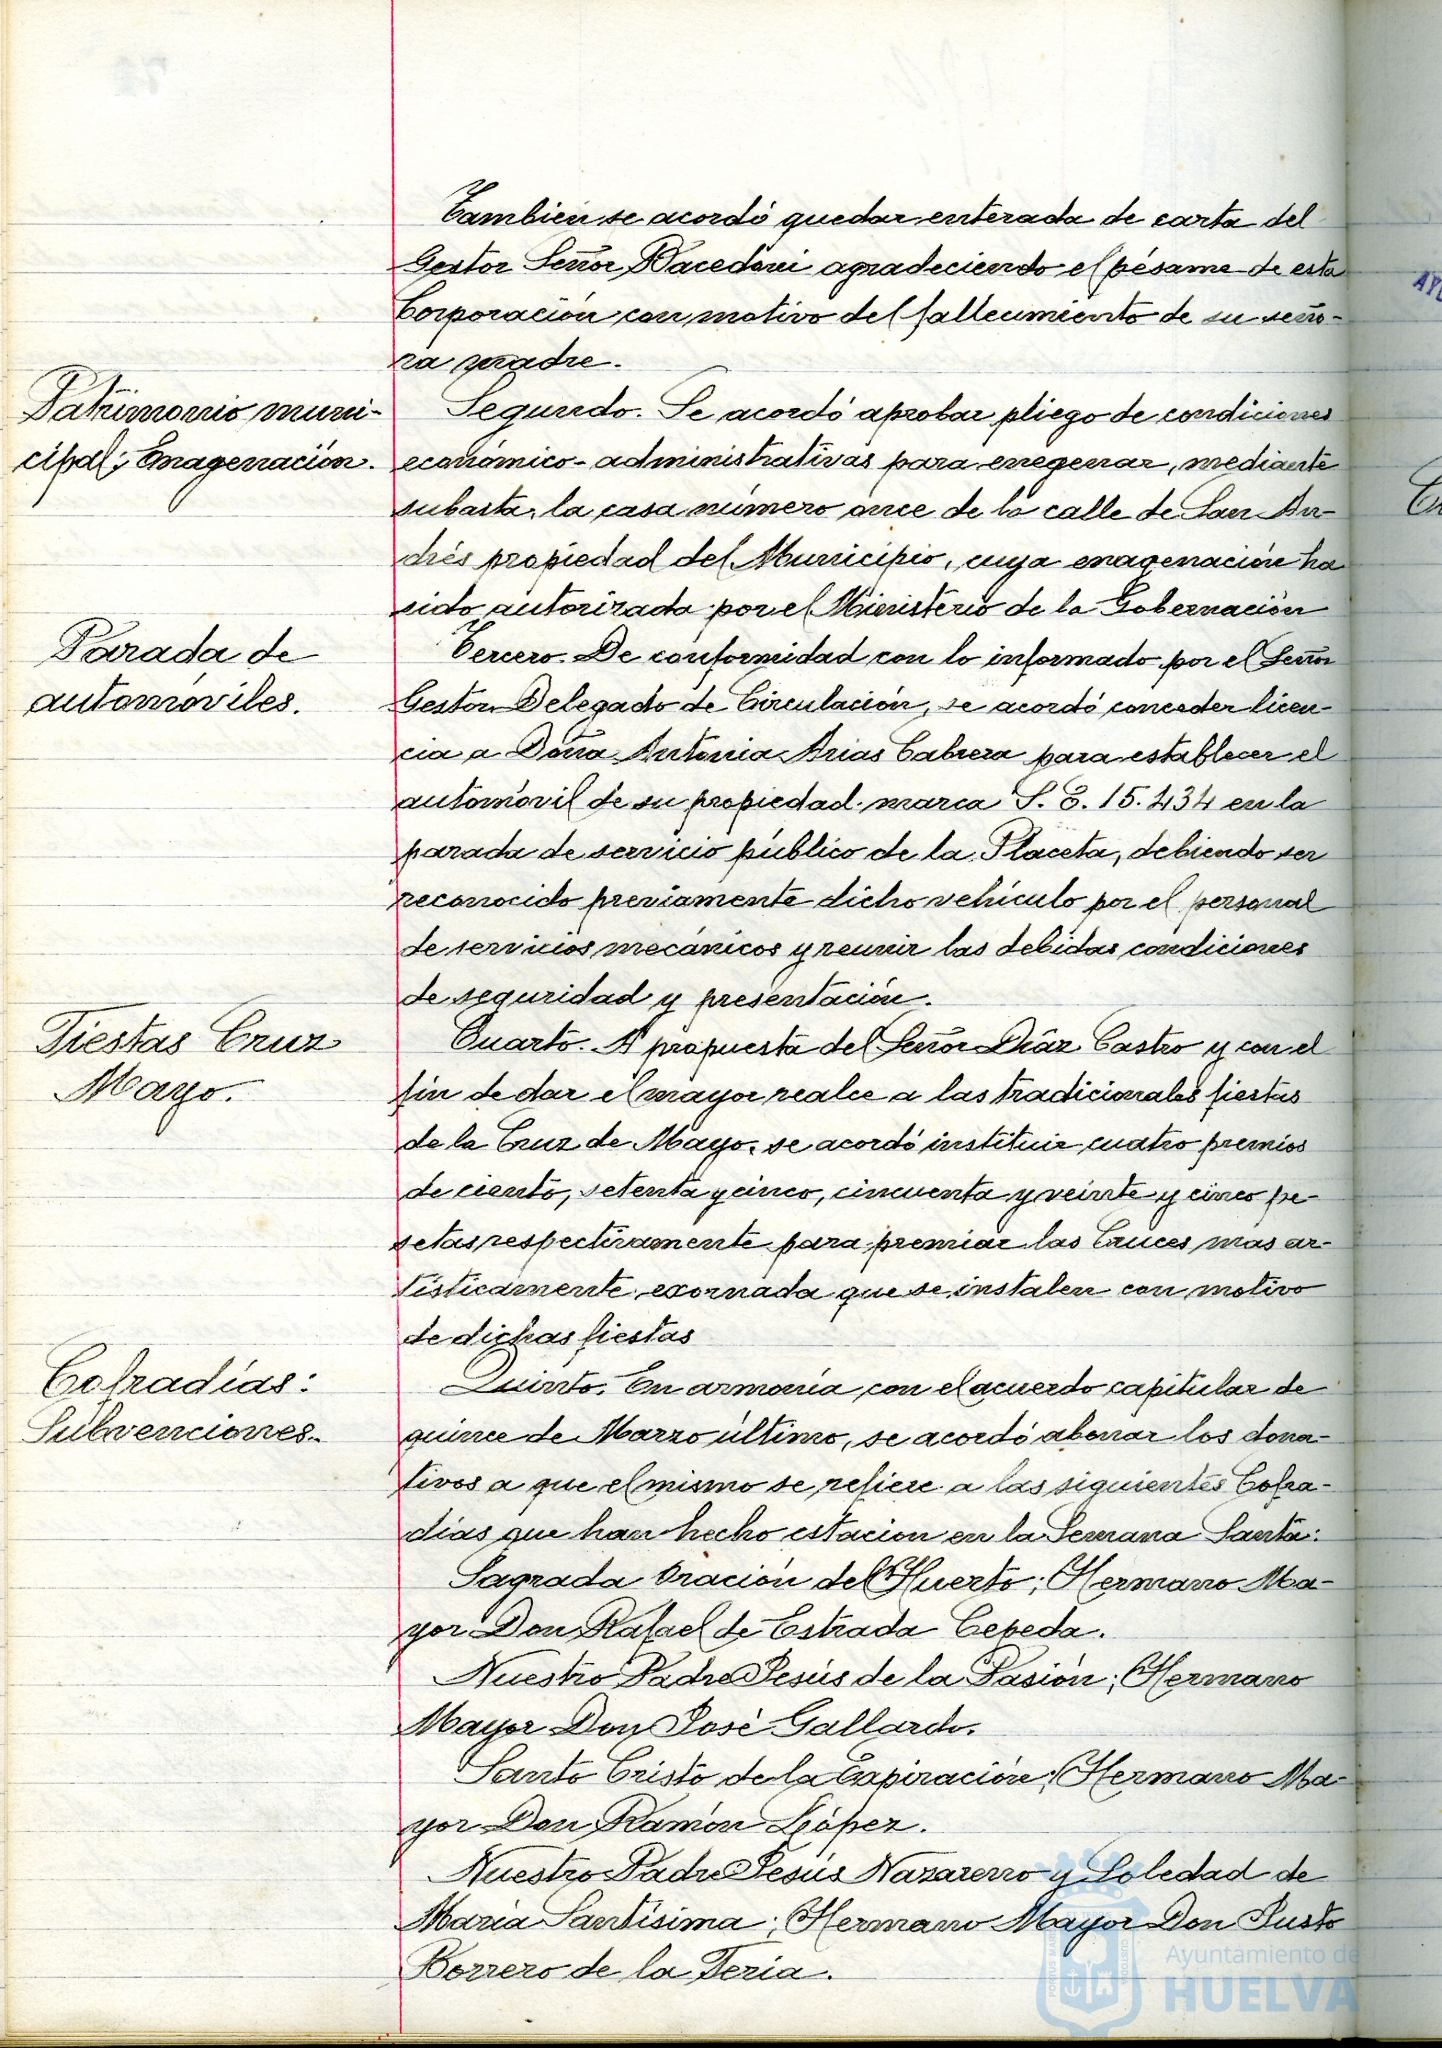 Tambien se acordó quedar enterada de carta del
Gestor Señor Macedoni agradeciendo el pésame de esta
Corporación con motivo del fallecimiento de su seño-
ra madre.
Patrimonio muni-
cipal; Enagenación.
Segundo. Se acordó aprobar pliego de condiciones
económico-administrativas para enegenar, mediante
subasta, la casa número once de la calle de San An-
drés propiedad del Municipio, cuya enagenación ha
sido autorizada por el Ministerio de la Gobernación
Parada de
automóviles.
Tercero. De conformidad con lo informado por el Señor
Gestor Delegado de Circulación, se acordó conceder licen-
cia a Doña Antonia Arias Cabrera para establecer el
automóvil de su propiedad marca S.E. 15.434 en la
parada de servicio público de la Placeta, debiendo ser
reconocido previamente dicho vehículo por el personal
de servicios mecánicos y reunir las debidas condiciones
de seguridad y presentación.
Fiestas Cruz
Mayo.
Cuarto. A propuesta del Señor Díaz Castro y con el
fin de dar el mayor realce a las tradicionales fiestas
de la Cruz de Mayo, se acordó instituir cuatro premios
de ciento, setenta y cinco, cincuenta y veinte y cinco pe-
setas respectivamente para premiar las Cruces mas ar-
tisticamente exornada que se instalen con motivo
de dichas fiestas
Cofradías:
Subvenciones.
Quinto. En armonía con el acuerdo capitular de
quince de Marzo último, se acordó abonar los dona-
tivos a que el mismo se refiere a las siguientes Cofra-
días que han hecho estacion en la Semana Santa:
Sagrada Oración del Huerto; Hermano Ma-
yor Don Rafael de Estrada Cepeda.
Nuestro Padre Jesús de la Pasión; Hermano
Mayor Don José Gallardo.
Santo Cristo de la Expiración; Hermano Ma-
yor Don Ramón López.
Nuestro Padre Jesús Nazareno y Soledad de
María Santísima; Hermano Mayor Don Justo
Borrero de la Feria.
Ayuntamiento de
HUELVA